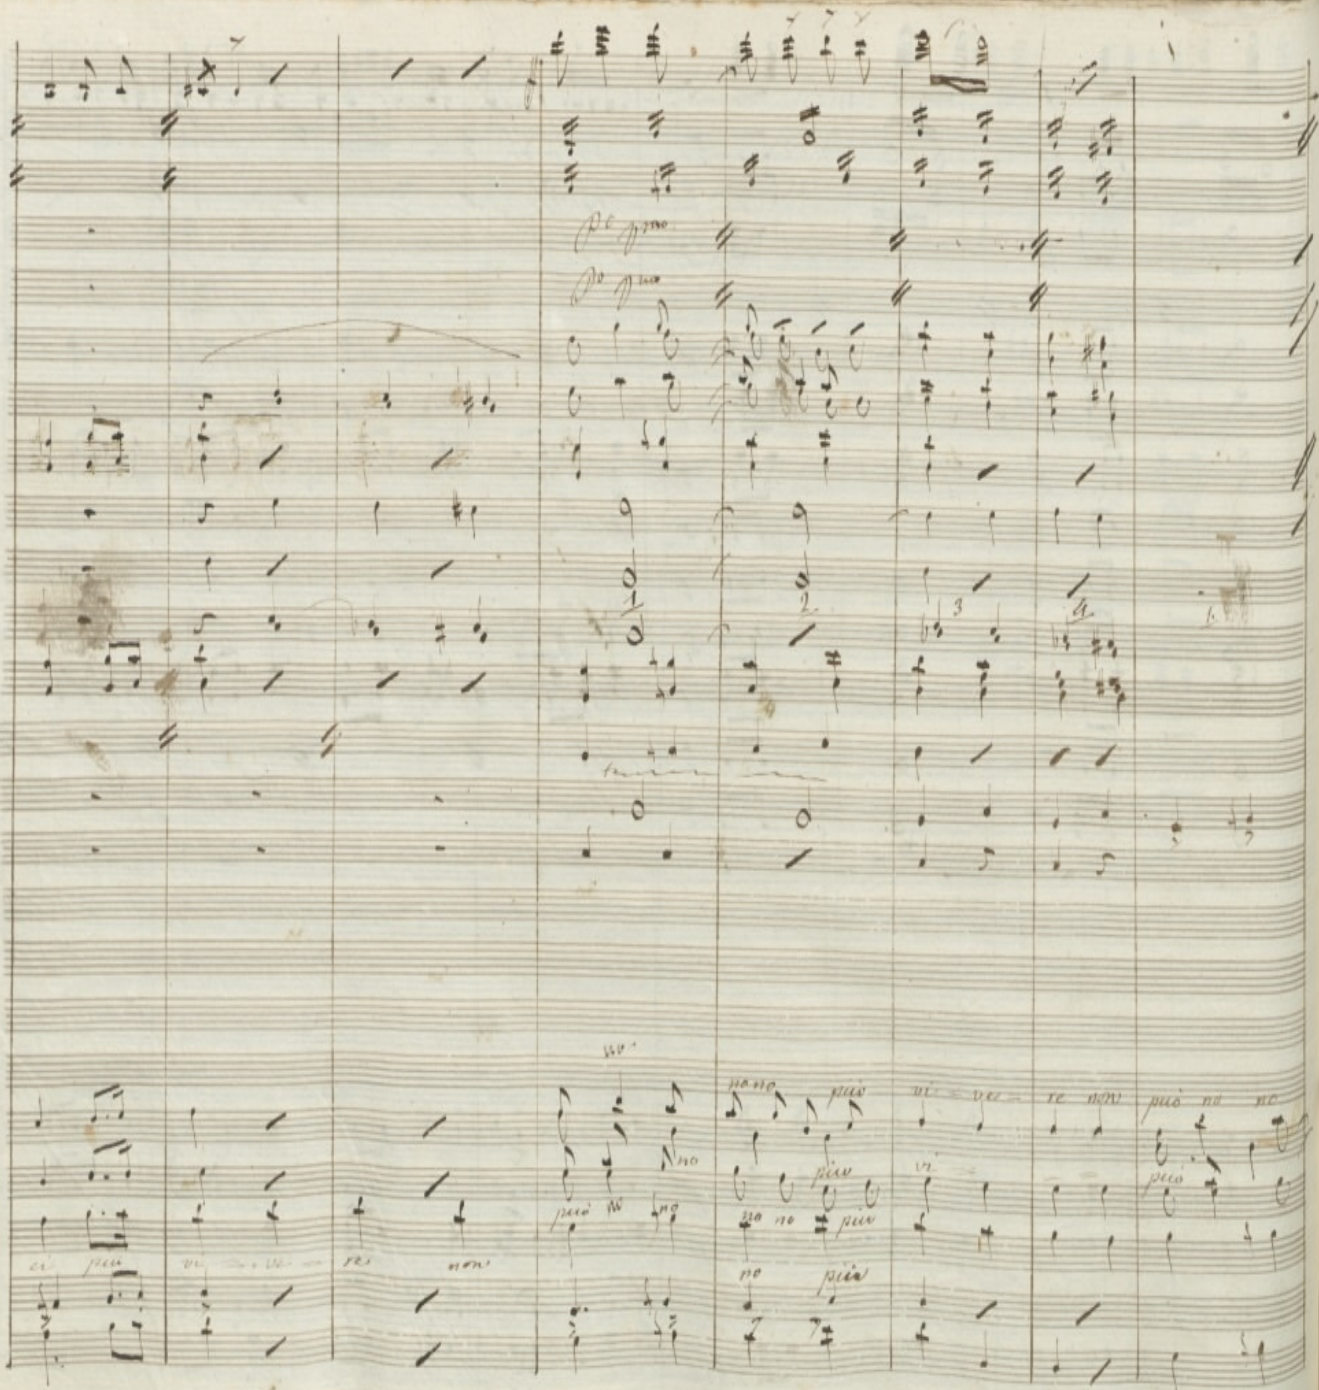 pmo
pmo
1 2 3 4 1.
no no più vi - ve - re non può no no
no più vi può
può no no no no più
più vi - ve - re non
no più